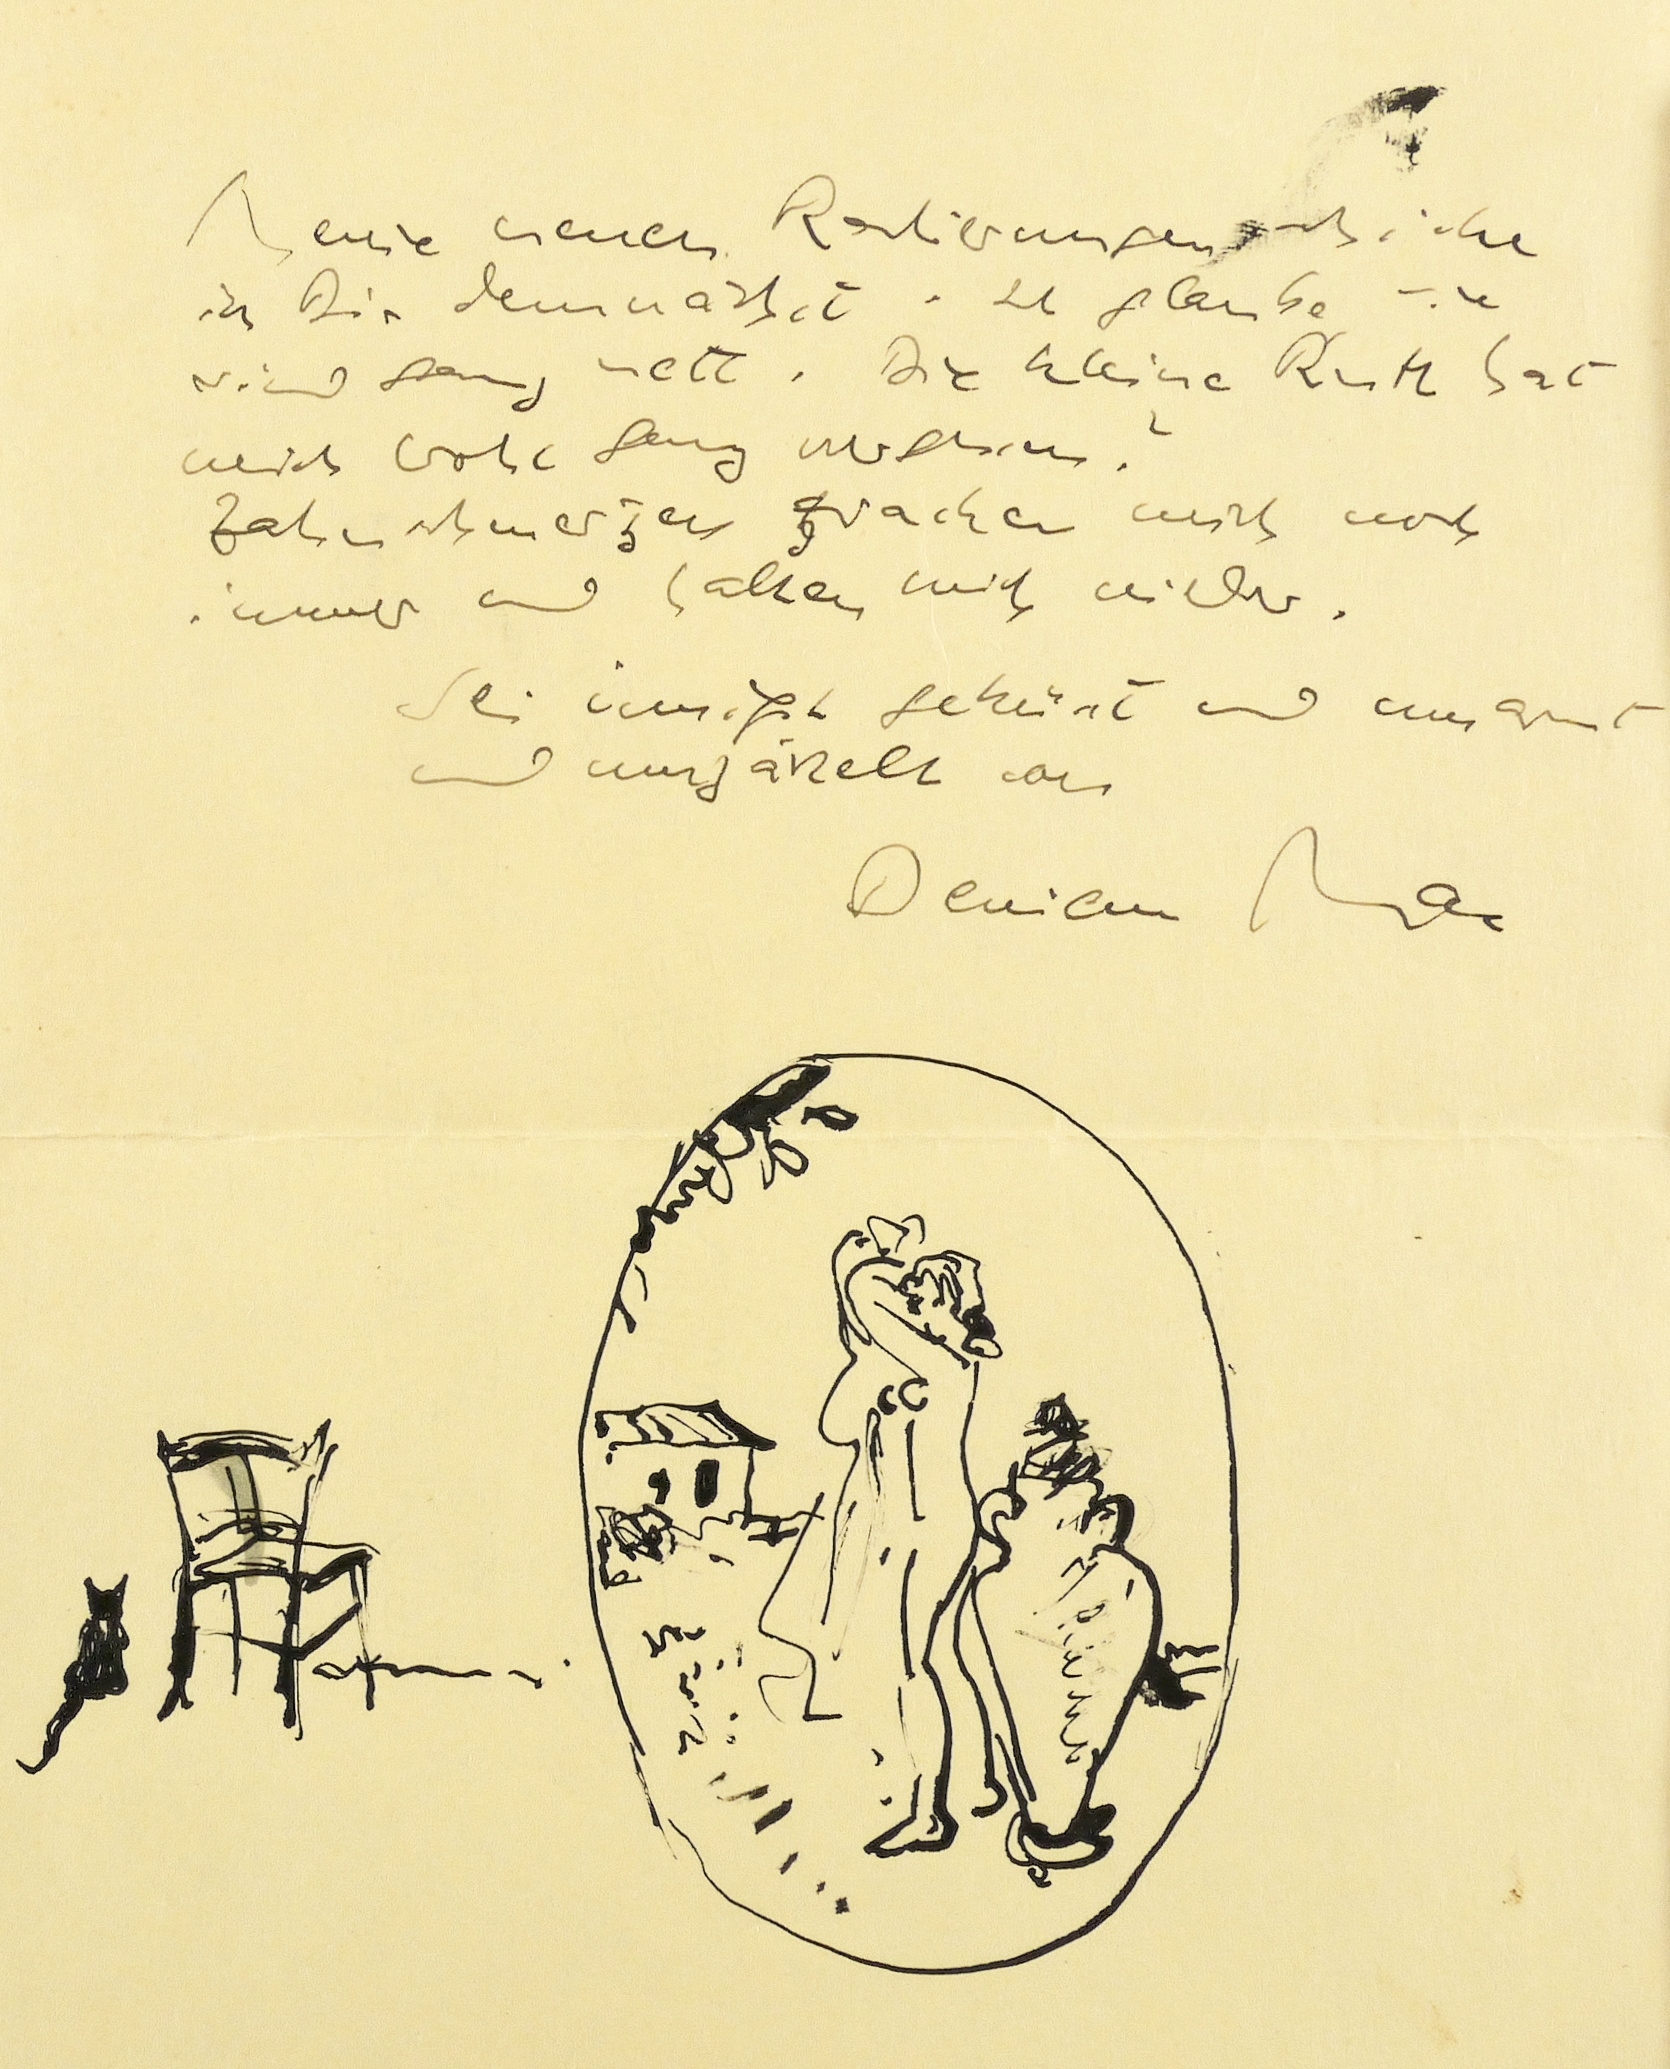 Meine neuen Radierungen schicke
ich Dir demnächst. Ich glaube sie
sind ganz nett. Die kleine Ruth hat
mich wohl ganz vergessen?
Zahnschmerzen zwacken mich noch
immer und halten mich nieder.
Sei innigst geküsst und umarmt
und umzärtelt von
Deinem